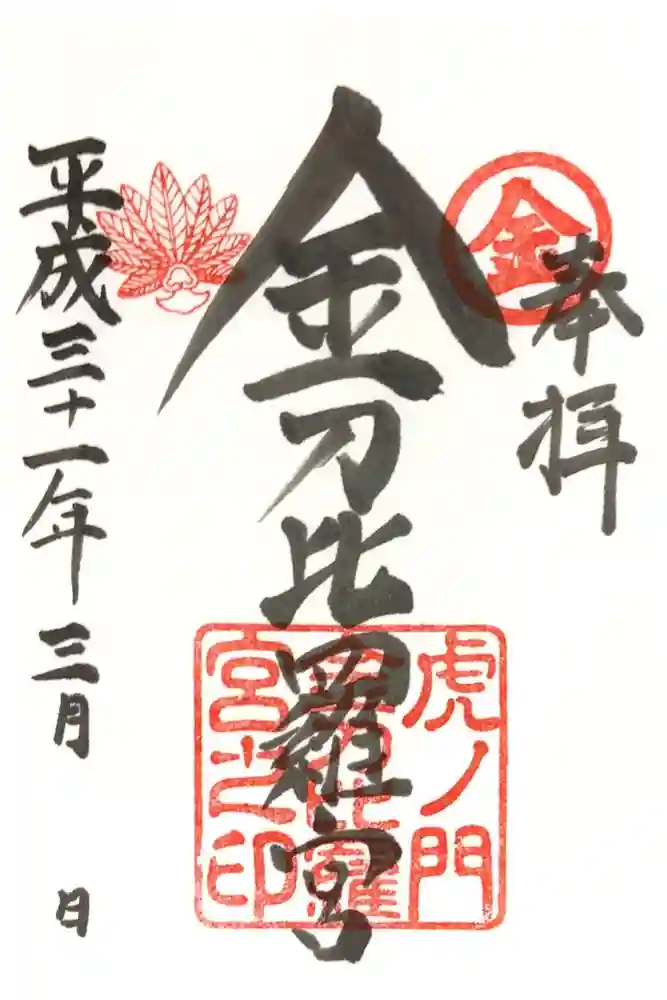 奉拝
金
金刀比羅宮
虎ノ門
金刀比羅
宮之印
平成三十一年三月 日